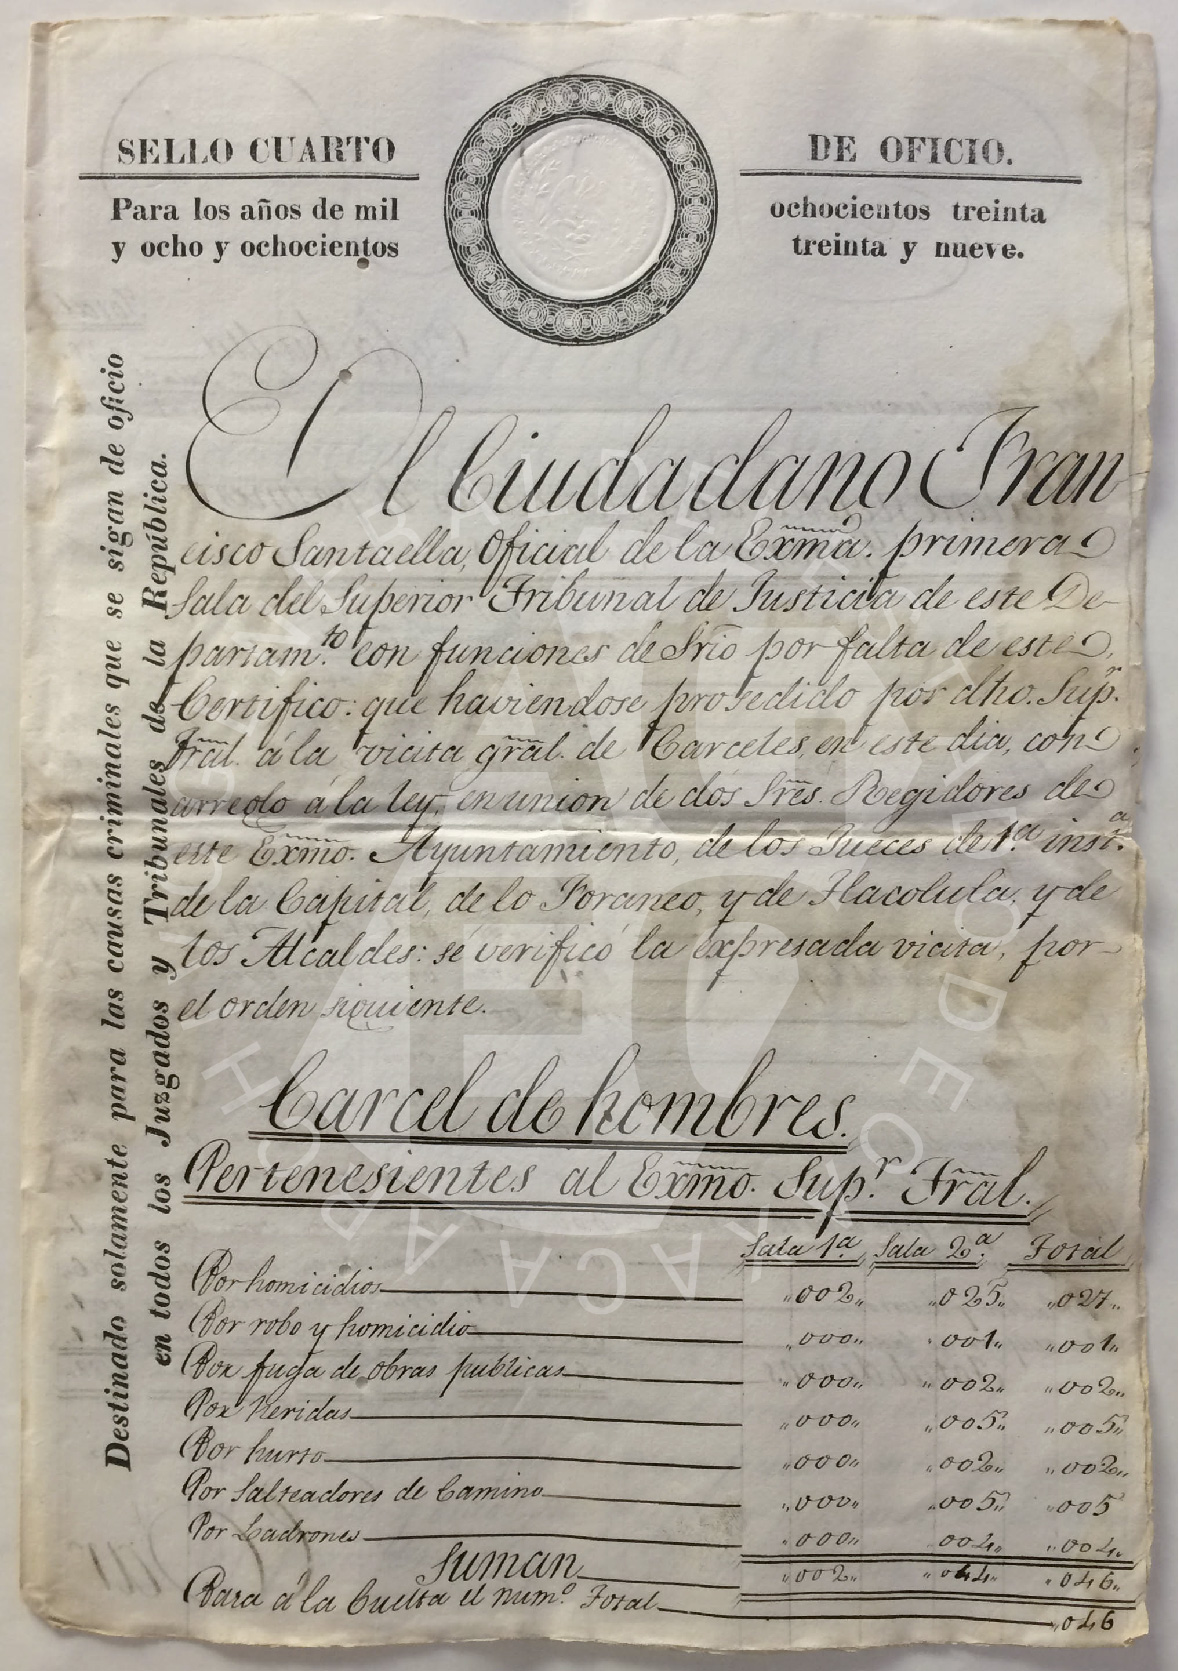 SELLO CUARTO
DE OFICIO.
Para los años de mil
ochocientos treinta
y ocho y ochocientos
treinta y nueve.
Destinado solamente para las causas criminales que se sigan de oficio
en todos los Juzgados y Tribunales de la República.
El Ciudadano Fran
cisco Santaella, Oficial de la Exma. primera
Sala del Superior Tribunal de Justicia de este De-
partam.to con funciones de Srio por falta de este,
Certifico: que haviendose prosedido por dho. Sup.r
Tral. á la vicita gral. de Carceles, en este dia, con
arreglo á la ley, en union de dos Sres. Regidores de
este Exmo. Ayuntamiento, de los Jueces de 1.a inst.a
de la Capital, de lo Foraneo, y de Tlacolula, y de
los Alcaldes: se verificó la expresada vicita, por
el orden siguiente.
Carcel de hombres.
Pertenesientes al Exmo. Sup.r Tral.
Sala 1.a Sala 2.a Total
Por homicidios „002„ „025„ „027„
Por robo y homicidio „000„ „001„ „001„
Por fuga de obras publicas „000„ „002„ „002„
Por heridas „000„ „005„ „005„
Por hurto „000„ „002„ „002„
Por Salteadores de Camino „000„ „005„ „005
Por Ladrones „000„ 004„ „004„
Suman „002„ „044„ „046„
Pasa á la Vuelta el num.o Total „046